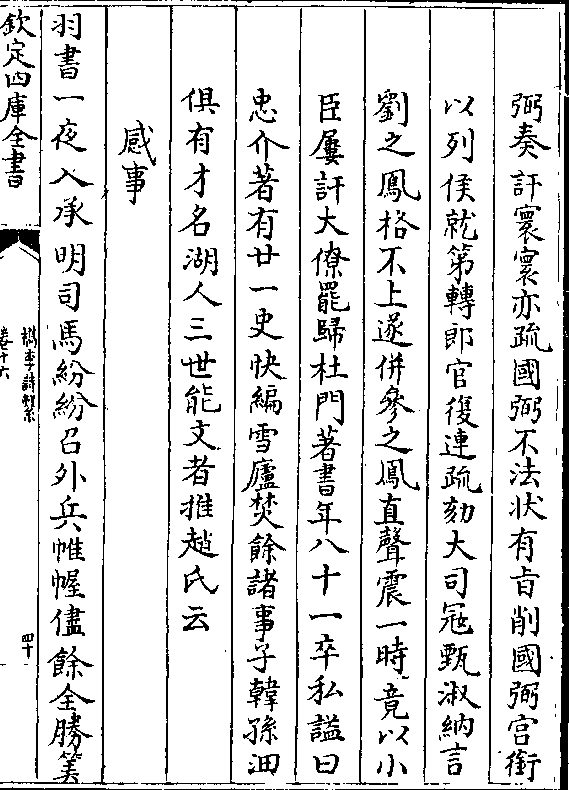 弼奏訐寰寰亦疏國弼不法狀有旨削國弼宫銜
以列侯就第轉郎官復連疏劾大司冦甄淑納言
劉之鳳格不上遂併參之鳳直聲震一時竟以小
臣屢訐大僚罷歸杜門著書年八十一卒私謚曰
忠介著有廿一史快編雪廬焚餘諸事子韓孫泗
俱有才名湖人三世能文者推趙氏云
感事
羽書一夜入承明司馬紛紛召外兵帷幄儘餘全勝筭
欽定四庫全書
檇李詩繫
卷十六
四十